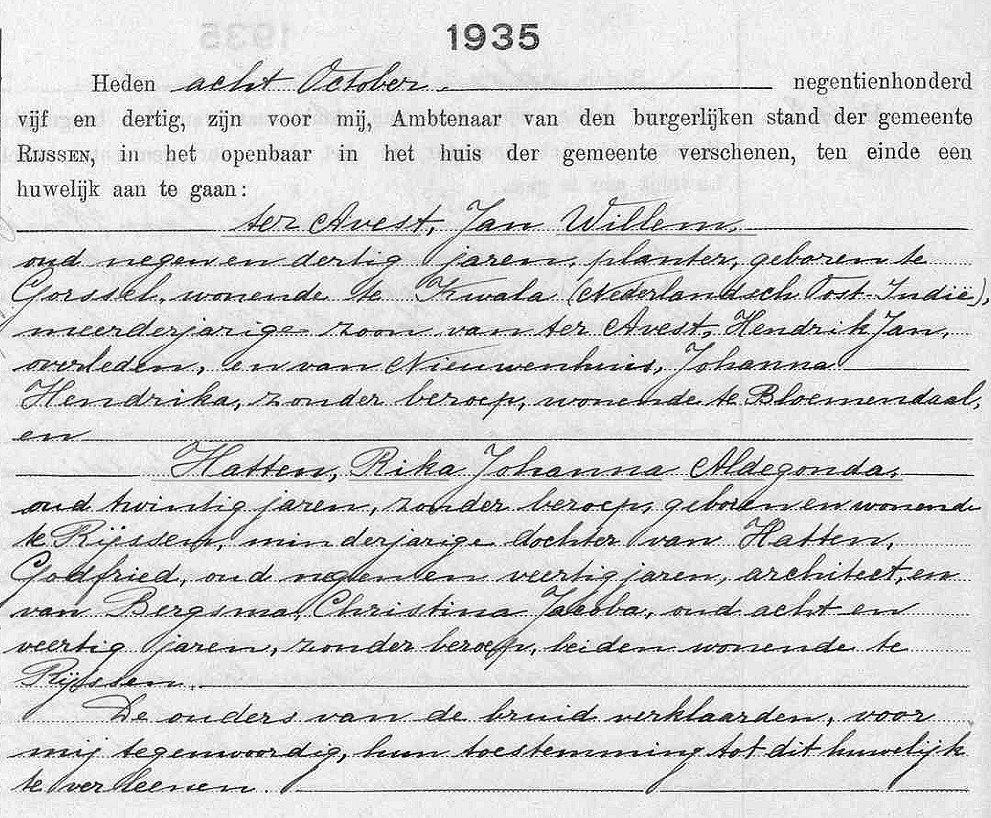 1935
Heden acht October. negentienhonderd
vijf en dertig, zijn voor mij, Ambtenaar van den burgerlijken stand der gemeente
RIJSSEN, in het openbaar in het huis der gemeente verschenen, ten einde een
huwelijk aan te gaan:
ter Avest, Jan Willem,
oud negen en dertig jaren, planter, geboren te
Gorssel, wonende te Kwala (Nederlandsch Oost-Indië),
meerderjarige zoon van ter Avest, Hendrik Jan,
overleden, en van Nieuwenhuis, Johanna
Hendrika, zonder beroep, wonende te Bloemendaal,
en
Hatten, Rika Johanna Aldegonda,
oud twintig jaren, zonder beroep, geboren en wonende
te Rijssen, minderjarige dochter van Hatten,
Godfried, oud negen en veertig jaren, architect, en
van Bergsma, Christina Jacoba, oud acht en
veertig jaren, zonder beroep, beiden wonende te
Rijssen.
De ouders van de bruid verklaarden, voor
mij tegenwoordig, hun toestemming tot dit huwelijk
te verleenen.